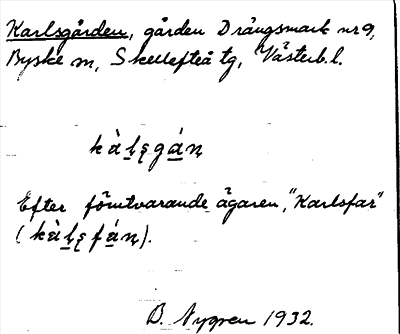 Karlsgården, gården Drängsmark nr 9,
Byske sn, Skellefteå tg, Västerb. l.
kàl̲ęgá̲ṇ
Efter förutvarande ägaren, "Karlsfar"
(kàl̲ęfá̲ṇ).
B. Nygren 1932.